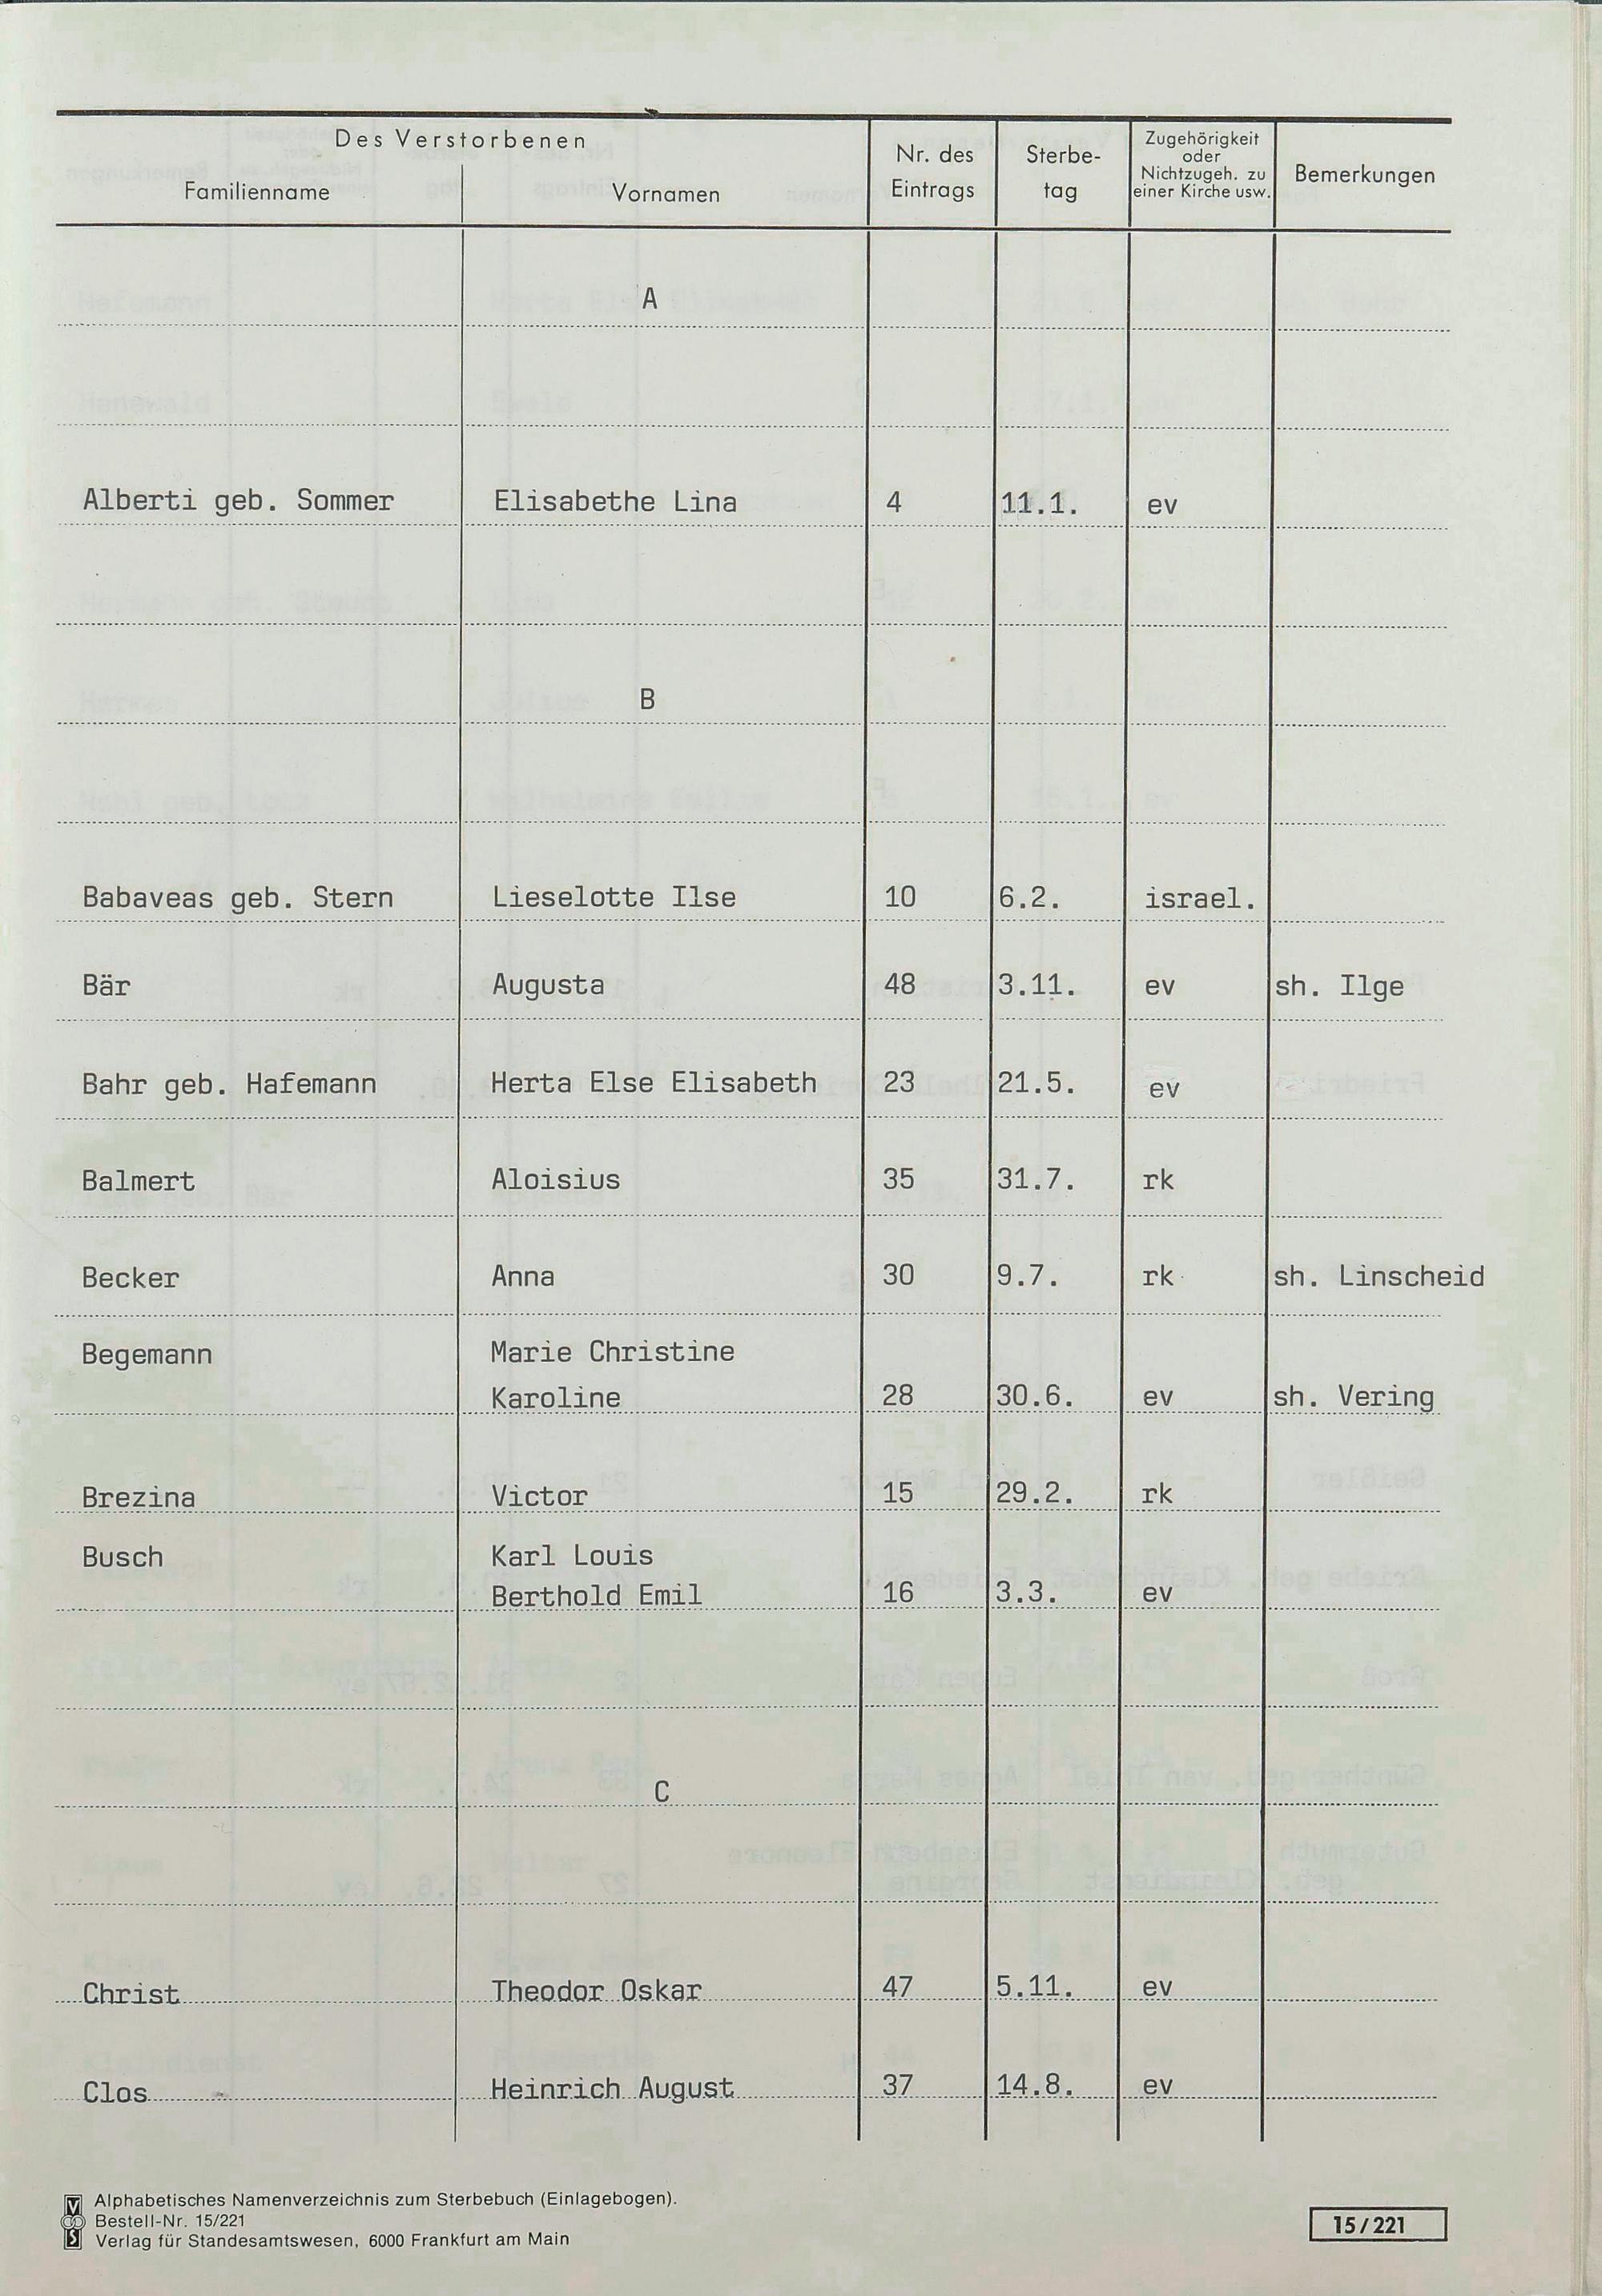 Des Verstorbenen
Familienname Vornamen Nr. des Eintrags Sterbe-tag Zugehörigkeit oder Nichtzugeh. zu einer Kirche usw. Bemerkungen
A
Alberti geb. Sommer Elisabethe Lina 4 11.1. ev
B
Babaveas geb. Stern Lieselotte Ilse 10 6.2. israel.
Bär Augusta 48 3.11. ev sh. Ilge
Bahr geb. Hafemann Herta Else Elisabeth 23 21.5. ev
Balmert Aloisius 35 31.7. rk
Becker Anna 30 9.7. rk sh. Linscheid
Begemann Marie Christine
Karoline 28 30.6. ev sh. Vering
Brezina Victor 15 29.2. rk
Busch Karl Louis
Berthold Emil 16 3.3. ev
C
Christ Theodor Oskar 47 5.11. ev
Clos Heinrich August 37 14.8. ev
Alphabetisches Namenverzeichnis zum Sterbebuch (Einlagebogen).
Bestell-Nr. 15/221
Verlag für Standesamtswesen, 6000 Frankfurt am Main
15/221